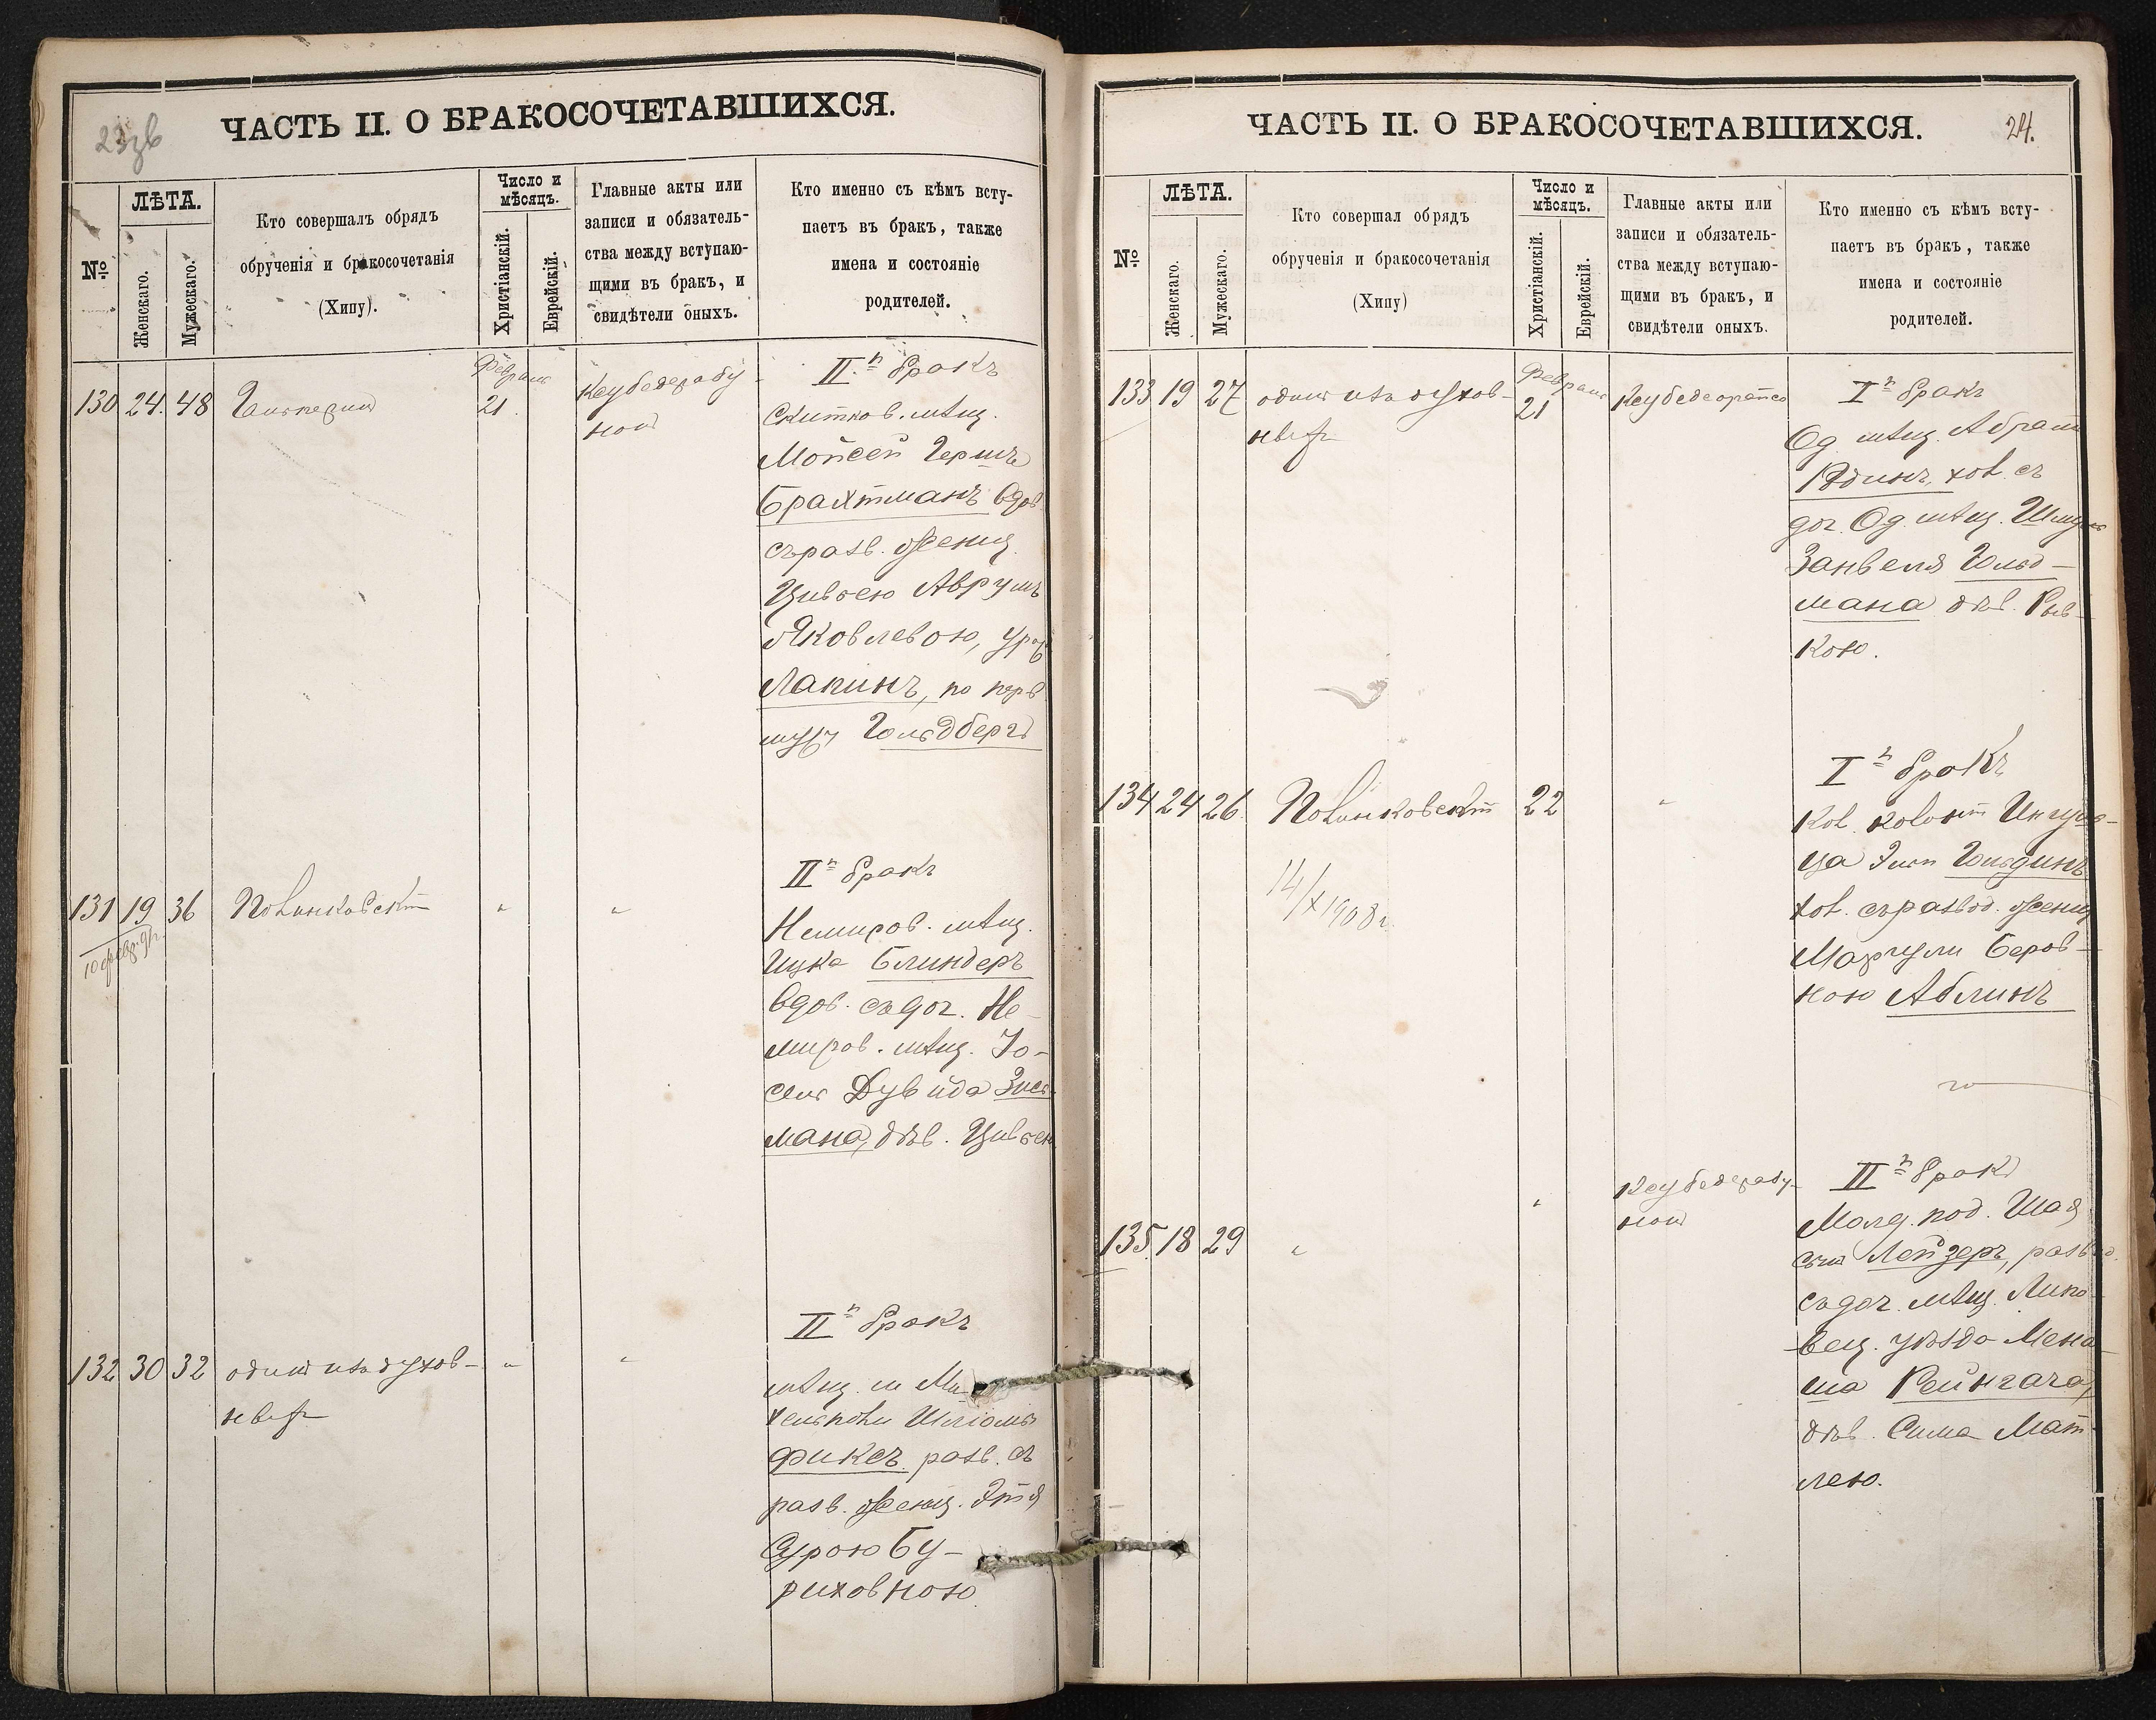 23об
ЧАСТЬ II. О БРАКОСОЧЕТАВШИХСЯ.
№
ЛѢТА.
Женскаго.
Мужескаго.
Кто совершалъ обрядъ
обрученія и бракосочетанія
(Хипу).
Число и
мѣсяцъ.
Христіанскій.
Еврейскій.
Главные акты или
записи и обязатель-
ства между вступаю-
щими въ бракъ, и
свидѣтели оныхъ.
Кто именно съ кѣмъ всту-
паетъ въ бракъ, также
имена и состояніе
родителей.
130 24. 48
Февраля
21.
II-й бракъ
Скитков. мѣщ.
Мойсей Гершъ
Брахтманъ вдов.
съ разв. женщ.
Цивьею Аврумъ
Яковлевою, урож.
Лапинъ, по перв.
мужу Гольдбергъ
131 19 36 Полинковскій " "
II-й бракъ
Немиров. мѣщ.
Ицка Блиндеръ
вдов. съ доч. Не-
миров. мѣщ. Іо-
сель Дувида Зись-
мана, дѣв. Цивьею
132 30 32 одинъ изъ духов- " "
ныхъ
II-й бракъ
мѣщ. м. Ми-
хельполи Шліома
Фиксъ разв. съ
разв. женщ. Этя
Сурою Бу-
риховною.
24.
ЧАСТЬ II. О БРАКОСОЧЕТАВШИХСЯ.
№
ЛѢТА.
Женскаго.
Мужескаго.
Кто совершал обрядъ
обрученія и бракосочетанія
(Хипу)
Число и
мѣсяцъ.
Христіанскій.
Еврейскій.
Главные акты или
записи и обязатель-
ства между вступаю-
щими въ бракъ, и
свидѣтели оныхъ.
Кто именно съ кѣмъ всту-
паетъ въ бракъ, также
имена и состояніе
родителей.
133 19 27 одинъ изъ духов-
ныхъ
Февраля
21
I-й бракъ
Од. мѣщ. Абрамъ
Юдинъ, хол. съ
доч. Од. мѣщ. Шмуль
Занвеля Гольд-
мана дѣв. Рив-
кою.
134 24 26 Полинковскій 22 "
14/X 1908 г.
I-й бракъ
Кол. колоніи Ингуль-
ца Гольдинъ
хол. съ развод. женщ.
Маргули Беров-
ною Аблинъ
135 18 29 " "
II-й бракъ
Молд. под. Шая
Лейзеръ, развод.
съ доч. мѣщ. Липо-
вец. уѣзда Мена-
ша Рейнгача,
дѣв. Сима Мат-
лею.